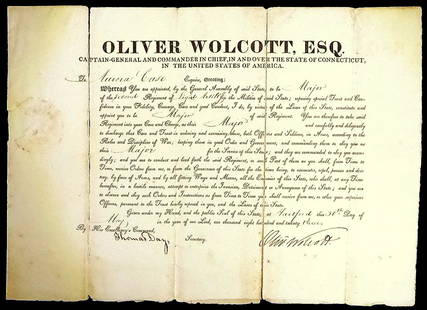 OLIVER WOLCOTT, ESQ.
CAPTAIN-GENERAL AND COMMANDER IN CHIEF, IN AND OVER THE STATE OF CONNECTICUT,
IN THE UNITED STATES OF AMERICA.
To Case Esquire, Greeting:
Whereas You are appointed, by the General Assembly of said State, to be Major
of the second Regiment of Light Artillery in the Militia of said State; reposing special Trust and Confidence
in your Fidelity, Courage, and good Conduct, I do, by virtue of the Laws of this State, constitute and
appoint you to be Major of said Regiment. You are therefore to take said
Regiment into your Care and Charge, as their Major and carefully and diligently
to discharge that Care and Trust in ordering and exercising them, both Officers and Soldiers, in Arms, according to the
Rules and Discipline of War; keeping them in good Order and Government, and commanding them to obey you as
their Major for the Service of this State; and they are commanded to obey you accordingly;
and you are to conduct and lead forth the said Regiment, or such Part of them as you shall, from Time to
Time, receive Orders from me, or from the Governor of this State for the time being, to encounter, repel, pursue and destroy,
by force of Arms, and by all fitting Ways and Means, all the Enemies of this State, who shall, at any Time
hereafter, in a hostile manner, attempt to enterprize the Invasion, Detriment or Annoyance of this State; and you are
to observe and obey such Orders and Instructions as from Time to Time you shall receive from me, or other your superior
Officers, pursuant to the Trust hereby reposed in you, and the Laws of this State.
Given under my Hand, and the public Seal of this State, at Hartford the 30th Day of
May in the year of our Lord, one thousand eight hundred and twenty three
By His Excellency's Command,
Thomas Day, Secretary.
Oliv Wolcott